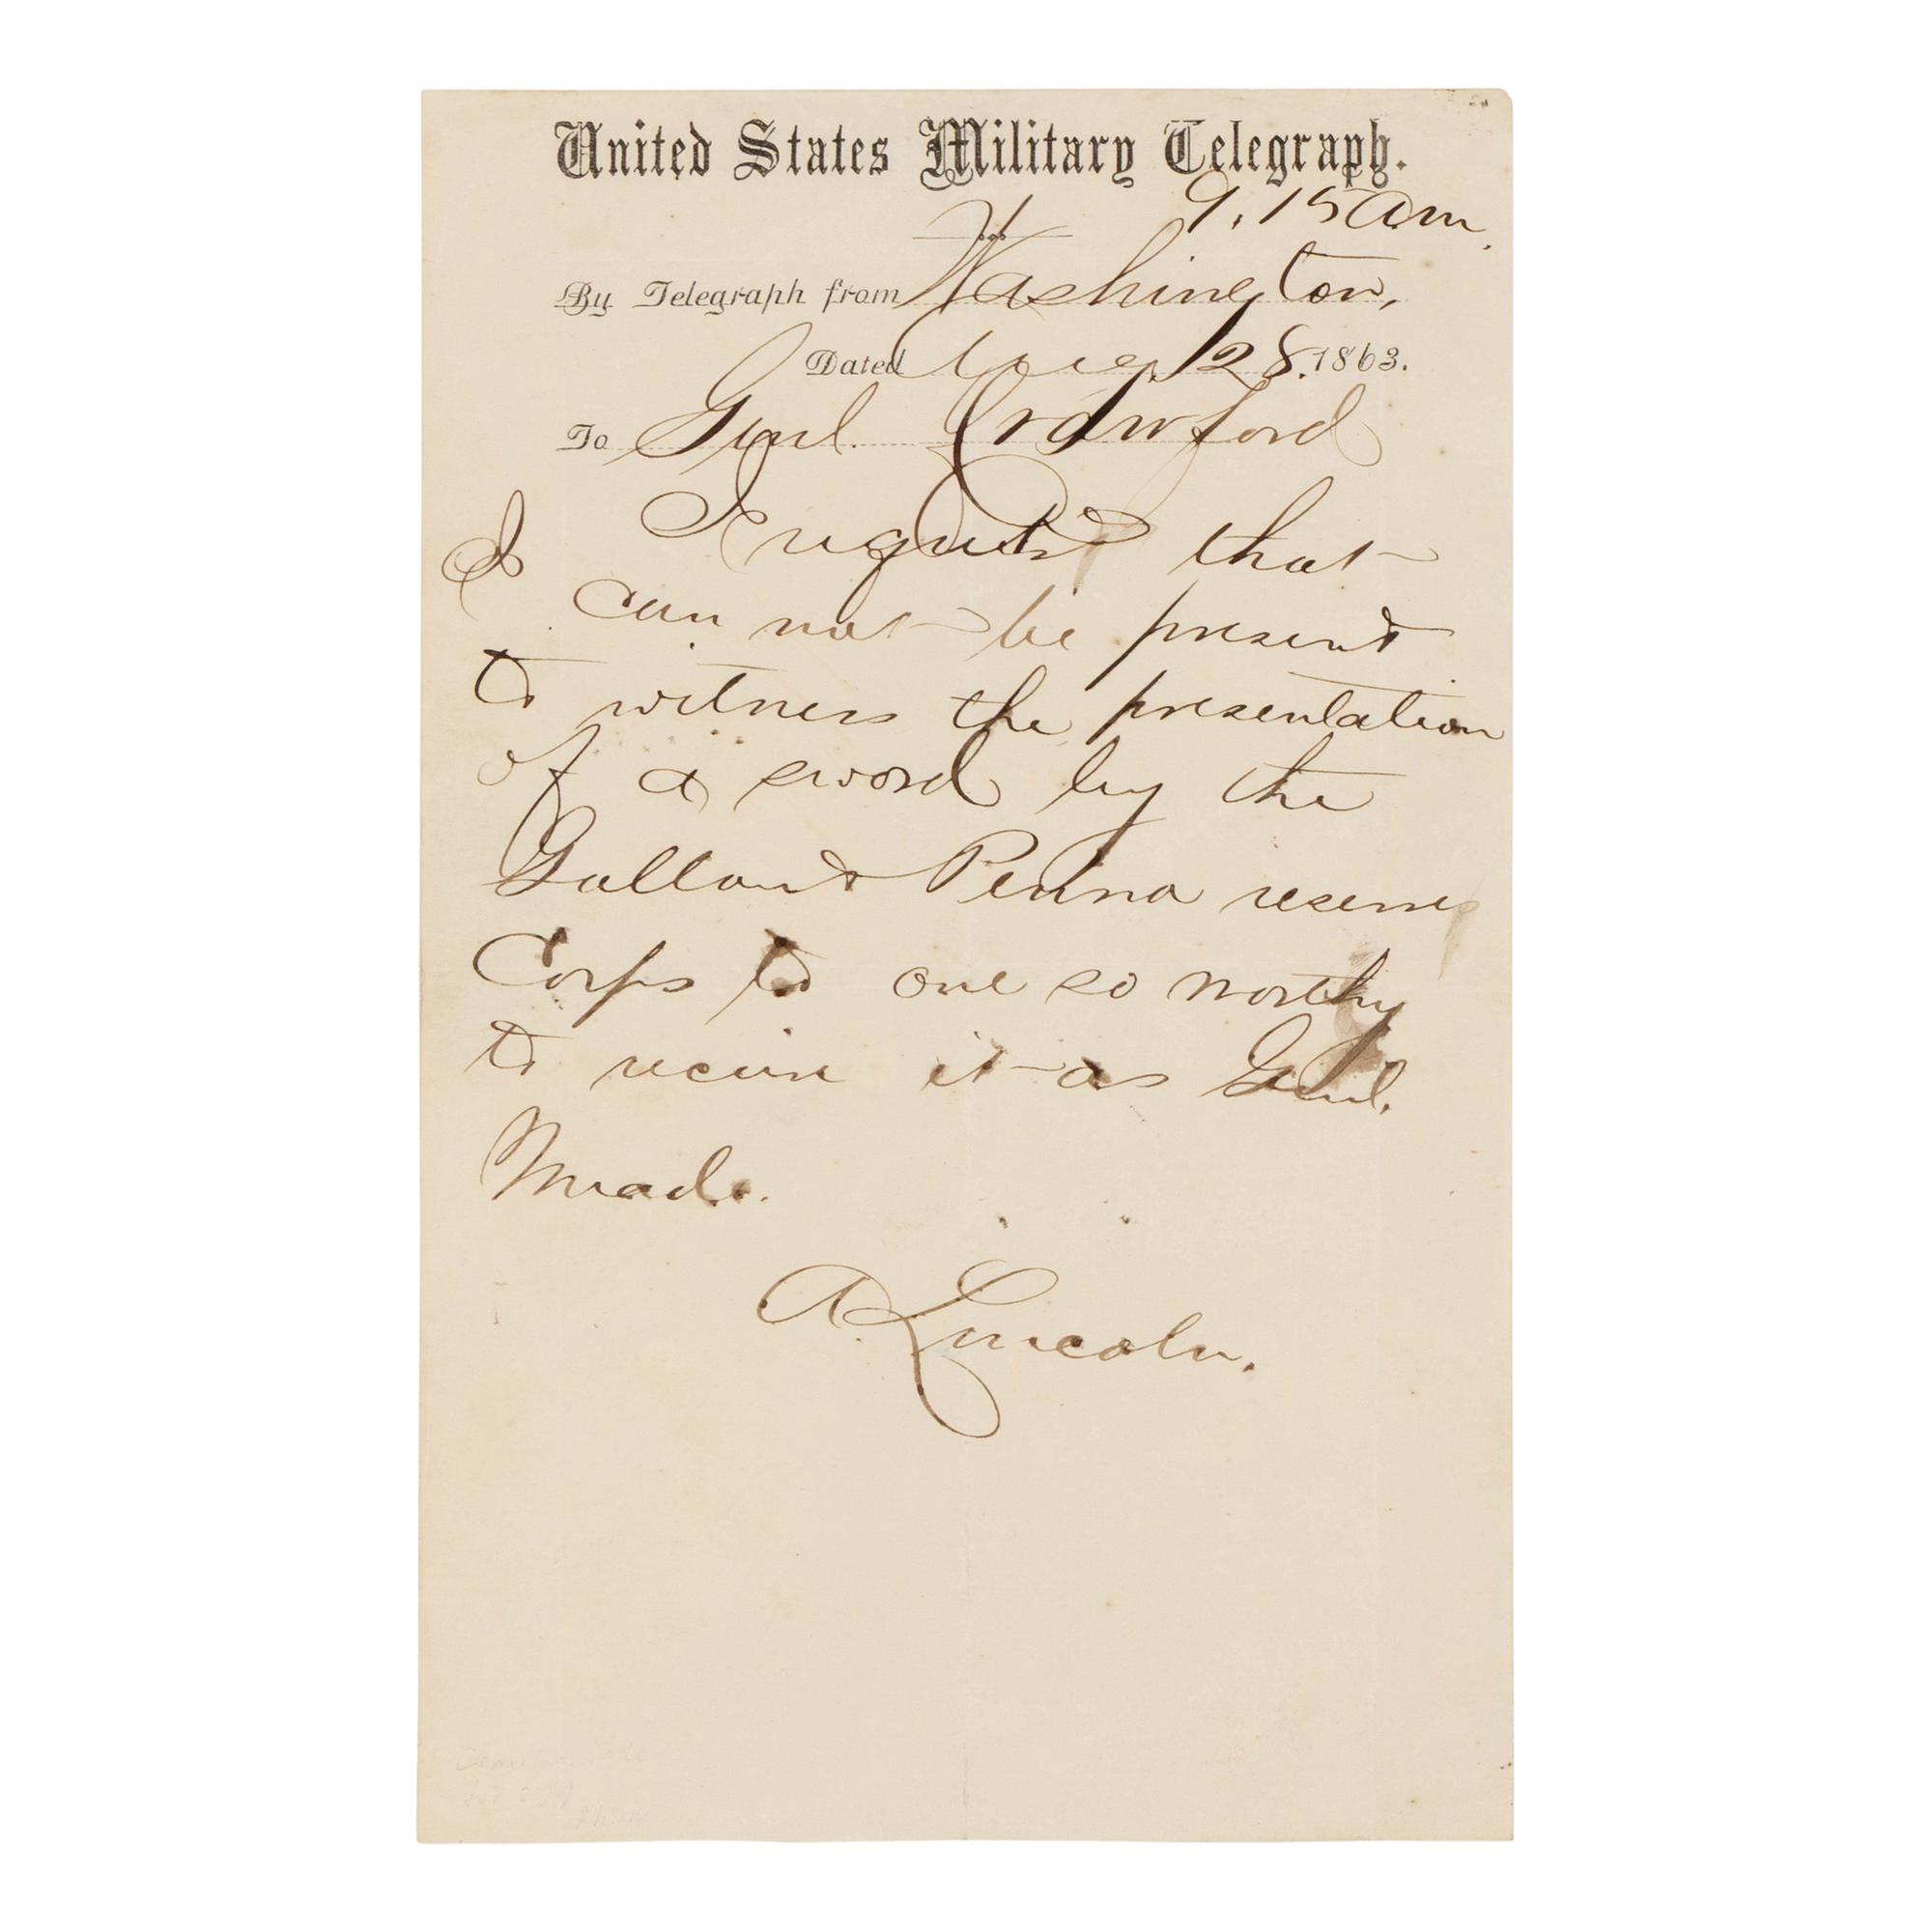 United States Military Telegraph.
9.15 am.
By Telegraph from Washington,
Dated Aug. 28. 1863.
To Genl. Crawford
I regret that
I can not be present
to witness the presentation
of a sword by the
Gallant Penna reserve
Corps to one so worthy
to receive it as Genl.
Meade.
A. Lincoln.